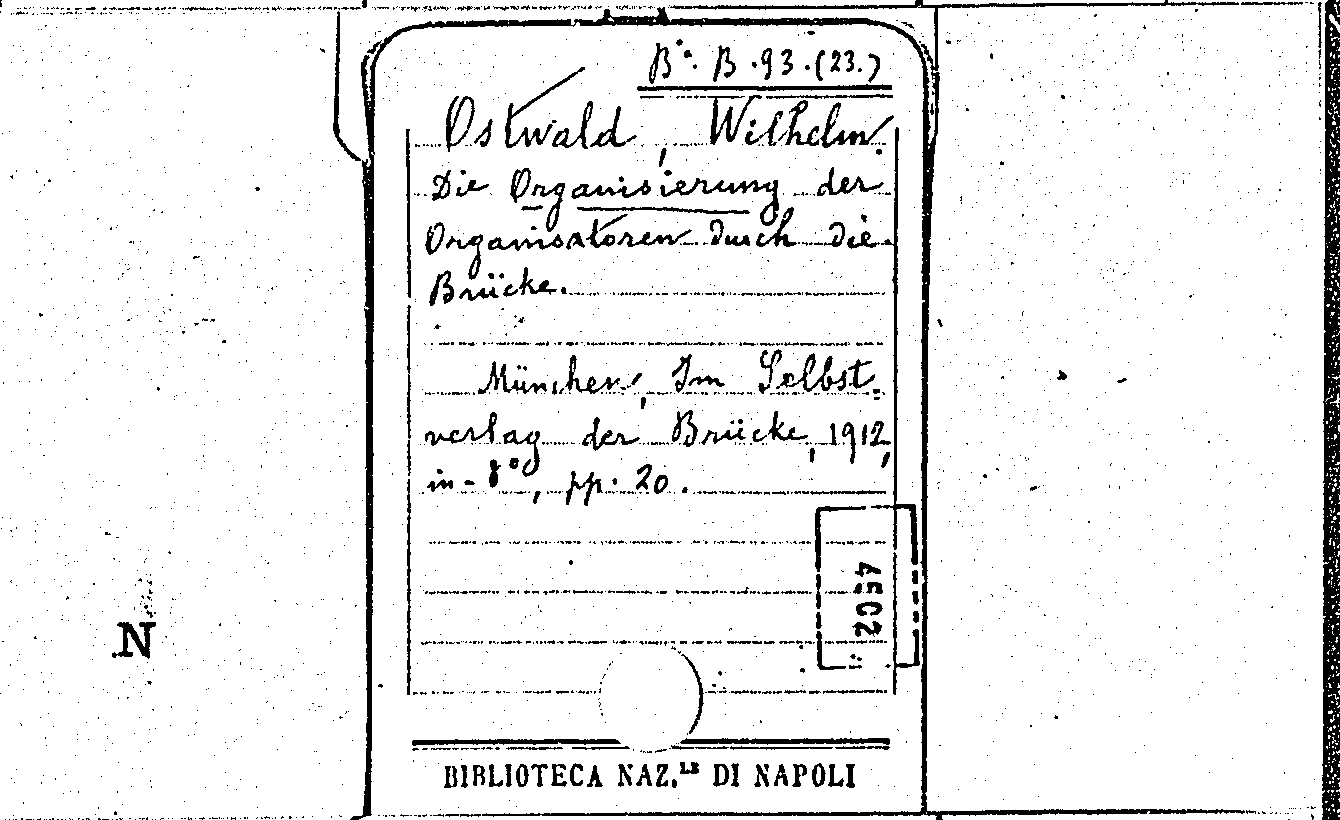 Bª. B.93.(23.)
Ostwald, Wilhelm.
Die Organisierung der
Organisatoren durch die
Brücke.
München, Im Selbst-
verlag der Brücke, 1912,
in-8º, pp. 20.
4502
N
BIBLIOTECA NAZ.LE DI NAPOLI